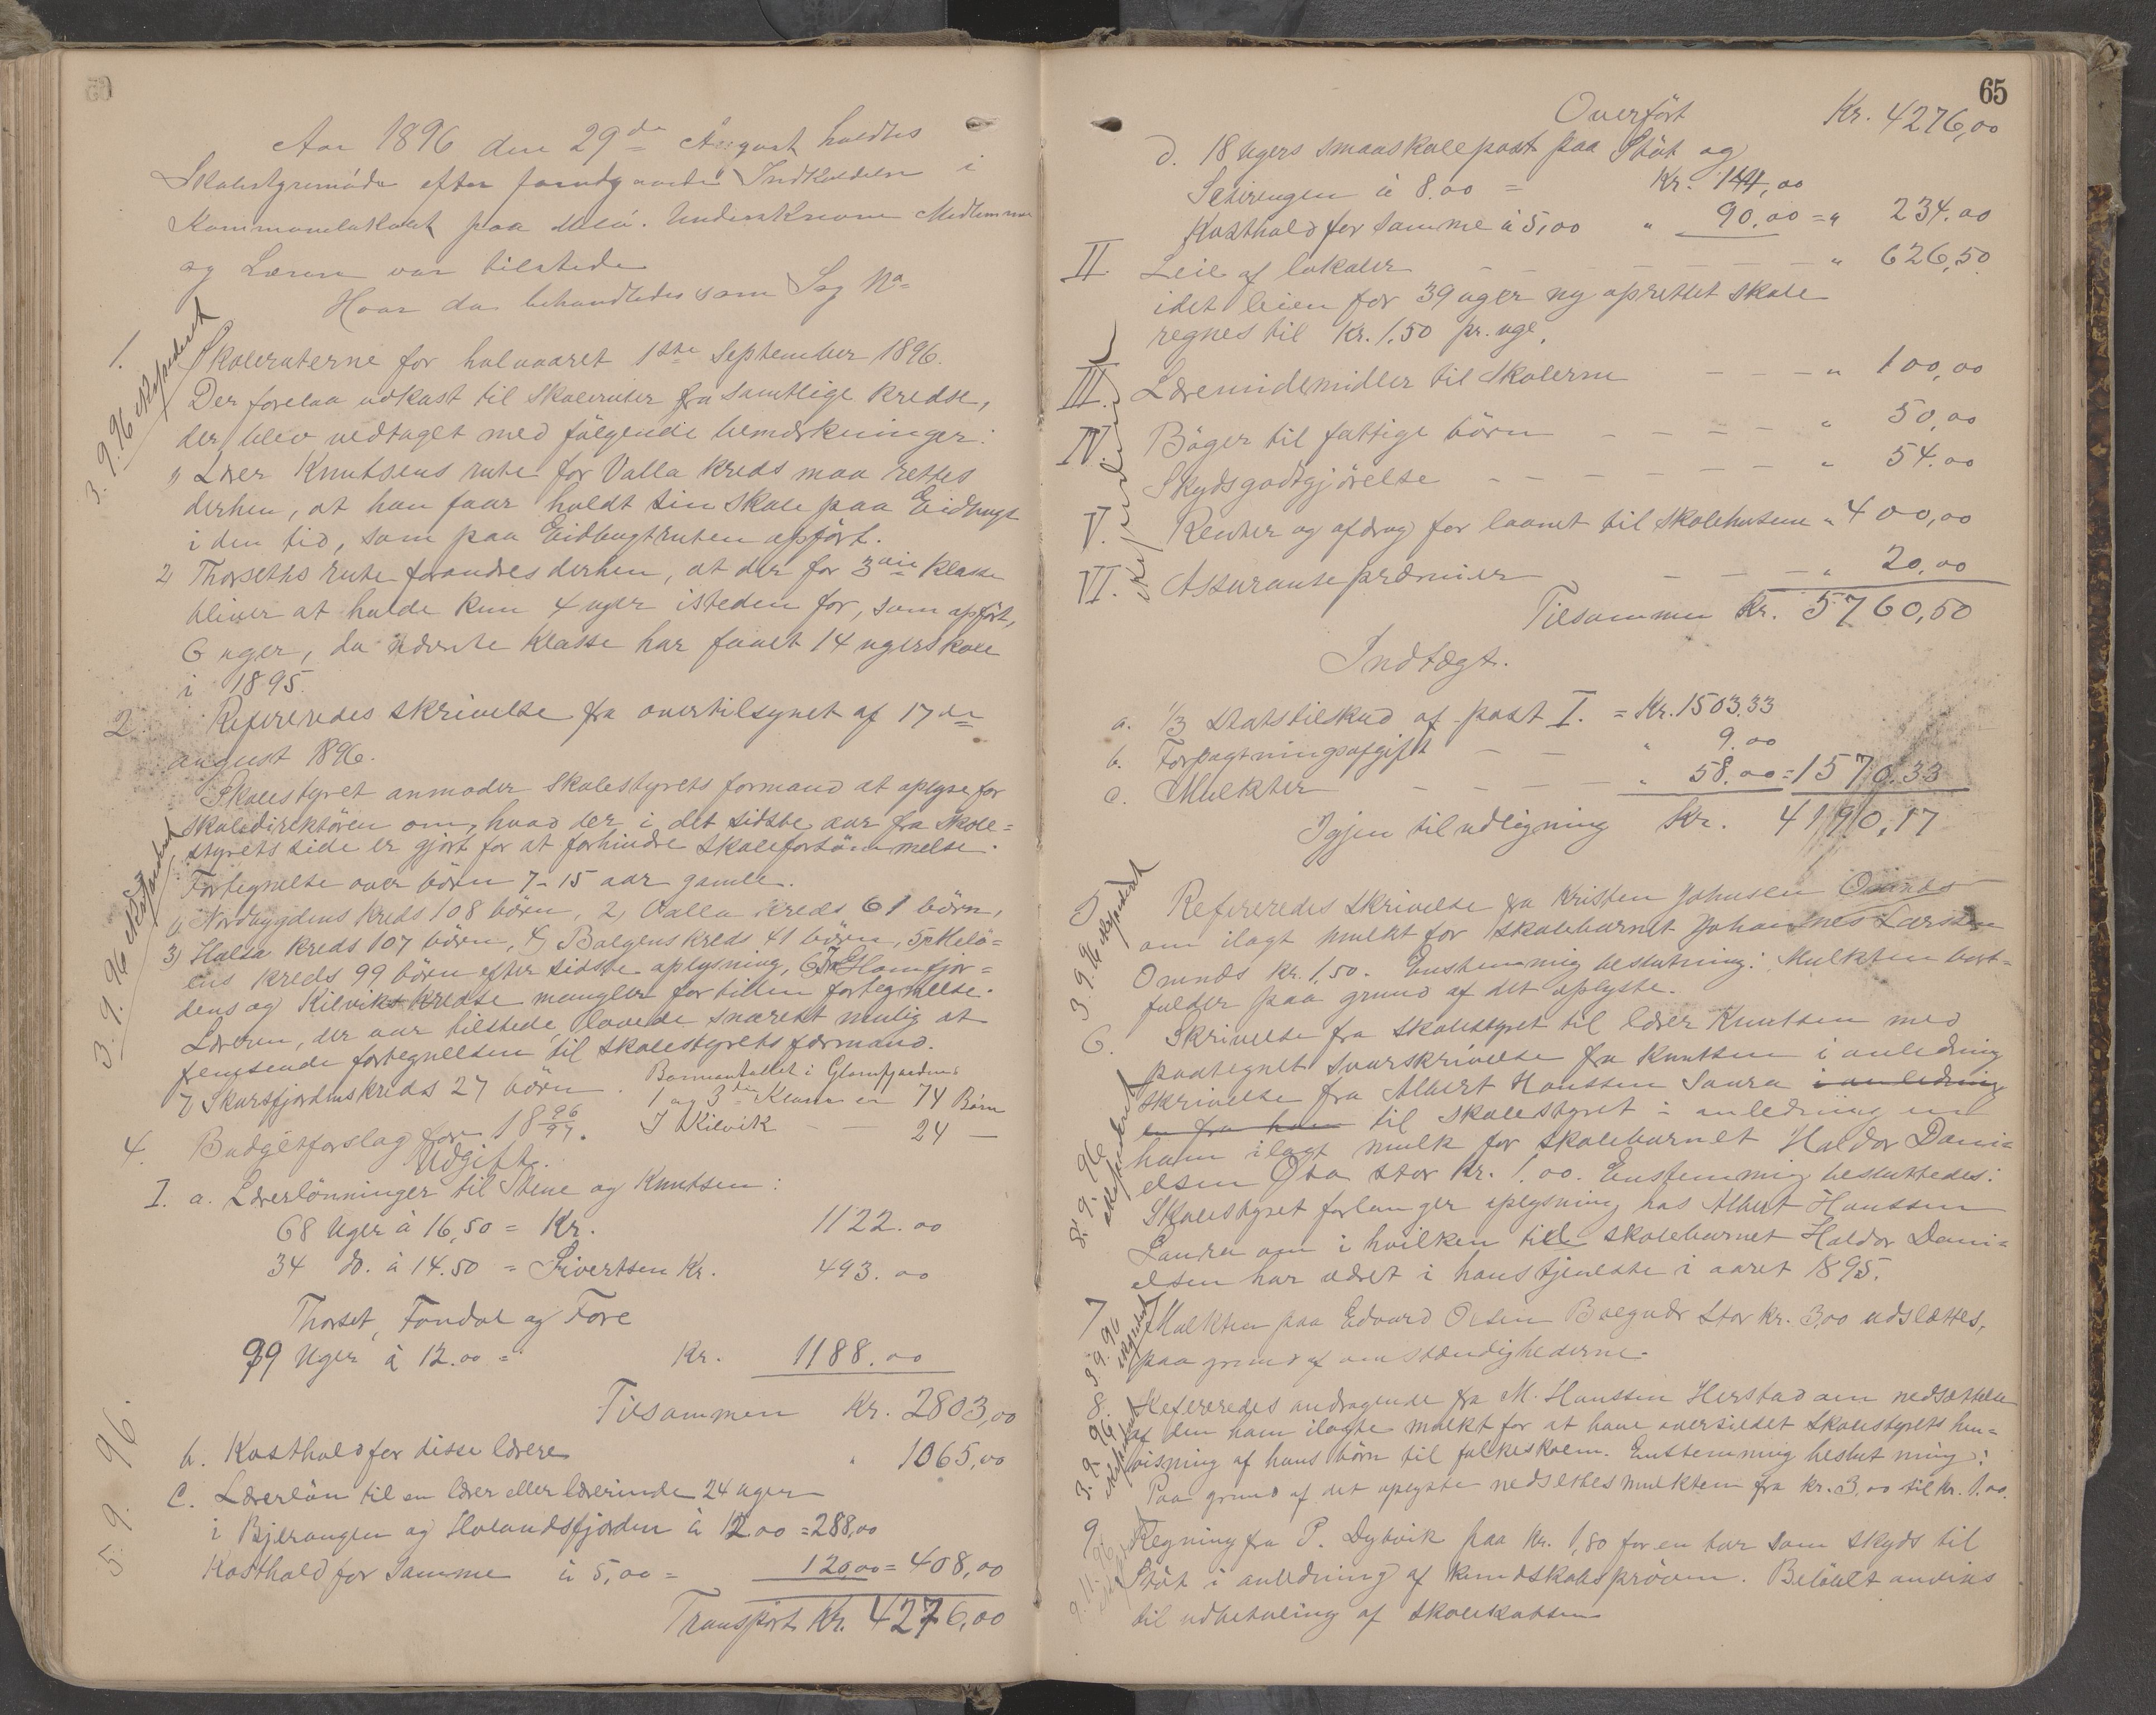 Aar 1896 den 29de August holdtes
Skolestyremöde efter forudgaaende Indkaldelse i
Kommunelokalet paa Melö. Underskrevne Medlemmer
og Lærere var tilstede
Hvor da behandledes som Sag No
1. Skoleruterne for halvaaret 1ste September 1896.
3.9.96 expederet
Der forelaa udkast til skoleruter fra samtlige kredse,
der blev vedtaget med fölgende bemærkninger:
1) Lærer Knutsens rute for Valla kreds maa rettes
derhen, at han faar holdt sin skole paa Eidbugt
i den tid, som paa Eidbugtruten opfört.
2) Thorseths rute forandres derhen, at der for 3die klasse
bliver at holde kun 4 uger isteden for, som opfört,
6 uger, da nævnte klasse har faaet 14 ugers skole
i 1895.
2. Refereredes skrivelse fra overtilsynet af 17de
august 1896.
Skolestyret anmoder skolestyrets formand at oplyse for
skoledirektören om, hvad der i det sidste aar fra skole=
styrets side er gjort for at forhindre skoleforsömmelse.
3. Fortegnelse over börn 7-15 aar gamle.
3.9.96 expederet
1) Nordbygdens kreds 108 börn, 2) Valla kreds 61 börn,
3) Halsa kreds 107 börn, 4) Bolgens kreds 41 börn, 5) Melö=
ens kreds 99 börn efter sidste oplysning, 6) For Glomfjor=
dens og Kilviks kredse mangler fortiden fortegnelse.
Læreren, der var tilstede, lovede snarest mulig at
fremsende fortegnelsen til skolestyrets formand.
7) Skarsfjordens kreds 27 börn. Barneantallet i Glomfjorden:
1 og 3die Klasse er 74 Börn
I Kilvik — — 24 —
4. Budgetforslag for 1896/97.
Udgift.
I. a. Lærerlönninger til Stene og Knutsen:
68 Uger à 16,50 = Kr. 1122.00
34 do. à 14.50 = Sivertsen Kr. 493.00
Thorset, Fondal og Fore
99 Uger à 12.00 = Kr. 1188.00
Tilsammen Kr. 2803,00
b. Kosthold for disse lærere " 1065,00
5.9.96.
C. Lærerlön til en lærer eller lærerinde 24 uger
i Bjerangen og Holandsfjorden à 12.00 = 288,00
Kosthold for samme à 5,00 = 120,00 = 408,00
Transport Kr. 4276,00
65
Overfört Kr. 4276,00
d. 18 ugers smaaskolepost paa Stöt og
Selvængen à 8.00 = Kr. 144,00
Kosthold for samme à 5,00 " 90,00 = " 234.00
II. Leie af lokaler — — — — — " 626,50
idet leien for 39 uger ny oprettet skole
regnes til Kr. 1,50 pr. uge.
III. Læremidemidler til skolerne — — — " 100,00
IV. Böger til fattige börn — — — — " 50,00
Skydsgodtgjörelse — — — — — — " 54.00
V. Renter og afdrag for laanet til skolehusene " 400,00
VI. Assurancepræmier — — — " 20,00
expederet
Tilsammen Kr. 5760,50
Indtægt.
a. 1/3 statstilskud af post I. = Kr. 1503.33
b. Forpagtningsafgift — — " 9.00
c. Mulkter — — — — " 58.00 = 1570.33
Igjen til udligning Kr. 4190,17
5. Refereredes skrivelse fra Kristen Johnsen Ornes
3.9.96 expederet
om ilagt mulkt for skolebarnet Johannes Larsen
Ornes Kr. 1,50. Enstemmig beslutning: Mulkten bort=
falder paa grund af det oplyste.
6. Skrivelse fra skolestyret til lærer Knutsen med
paategnet svarskrivelse fra Knutsen i anledning
skrivelse fra Albert Hanssen Saura i anledning
en fra ham til skolestyret i anledning en
ham ilagt mulk for skolebarnet Haldor Dani=
elsen Øsa stor Kr. 1.00. Enstemmig besluttedes:
8.9.96 expederet
Skolestyret forlanger oplysning hos Albert Hanssen
Saura om i hvilken tid skolebarnet Haldor Dani=
elsen har været i hans tjeneste i aaret 1895.
7. Mulkten paa Edvard Olsen stor Kr. 3,00 udslættes,
3.9.96 expederet
paa grund af omstændighederne.
8. Refereredes andragende fra M. Hanssen Herstad om nedsættelse
3.9.96. expederet
af den ham ilagte mulkt for at have oversiddet skolestyrets hen=
visning af hans börn til folkeskolen. Enstemmig beslutning:
Paa grund af det oplyste nedsættes mulkten fra Kr. 3,00 til Kr. 1.00.
9. Regning fra P. Dybvik paa Kr. 1,80 for en tur som skyds til
9.11.96.
Stöt i anledning af kundskabspröven. Belöbet anvises
til udbetaling af skolekassen